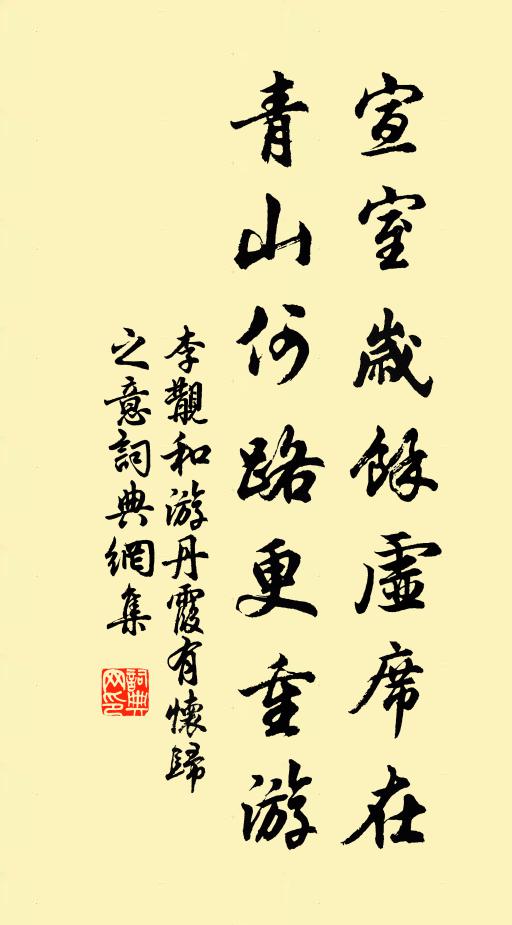 宣室歲餘虛席在
青山何路更重游
李觀和游丹霞有懷歸
之意詞典網集
詞典
网印